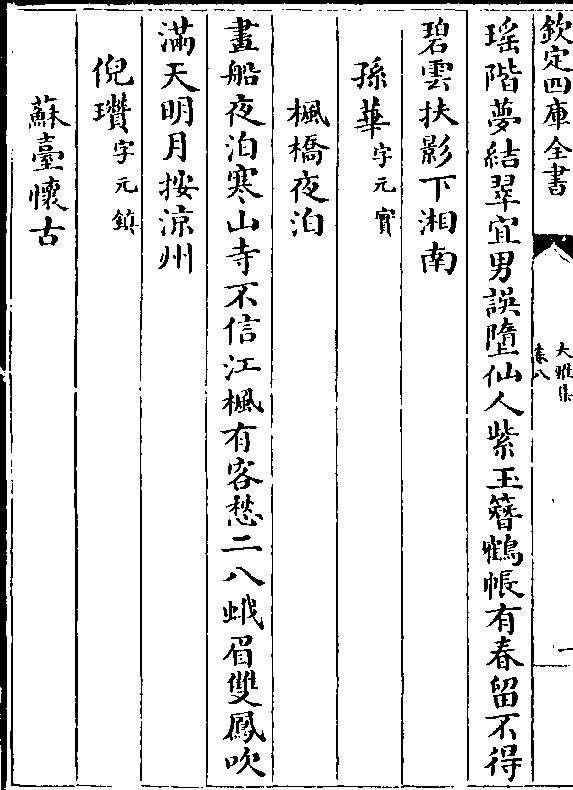 欽定四庫全書
大雅集
卷八
一
瑶階夢結翠宜男誤墮仙人紫玉簪鶴帳有春留不得
碧雲扶影下湘南
孫華字元實
楓橋夜泊
畫船夜泊寒山寺不信江楓有客愁二八蛾眉雙鳳吹
滿天明月按涼州
倪瓚字元鎮
蘇臺懷古